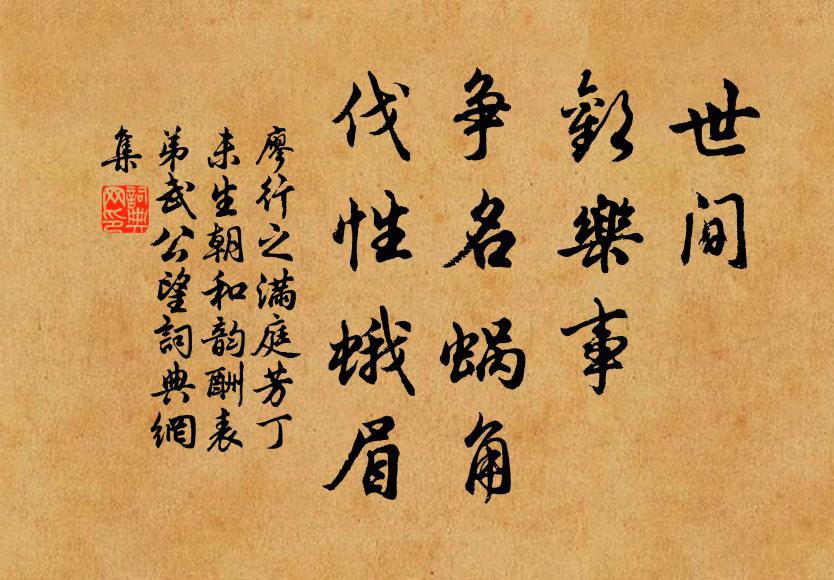 世间
歡樂事
争名蜗角
伐性蛾眉
廖行之满庭芳丁
未生朝和韵酬表
弟武公望詞典網
集
詞典
网印